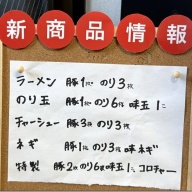 新商品情報
ラーメン 豚1枚 のり3枚
のり玉 豚1枚 のり6枚 味玉1コ
チャーシュー 豚3枚 のり3枚
ネギ 豚1枚 のり3枚 味ネギ
特製 豚2枚 のり6枚 味玉1コ コロチャー